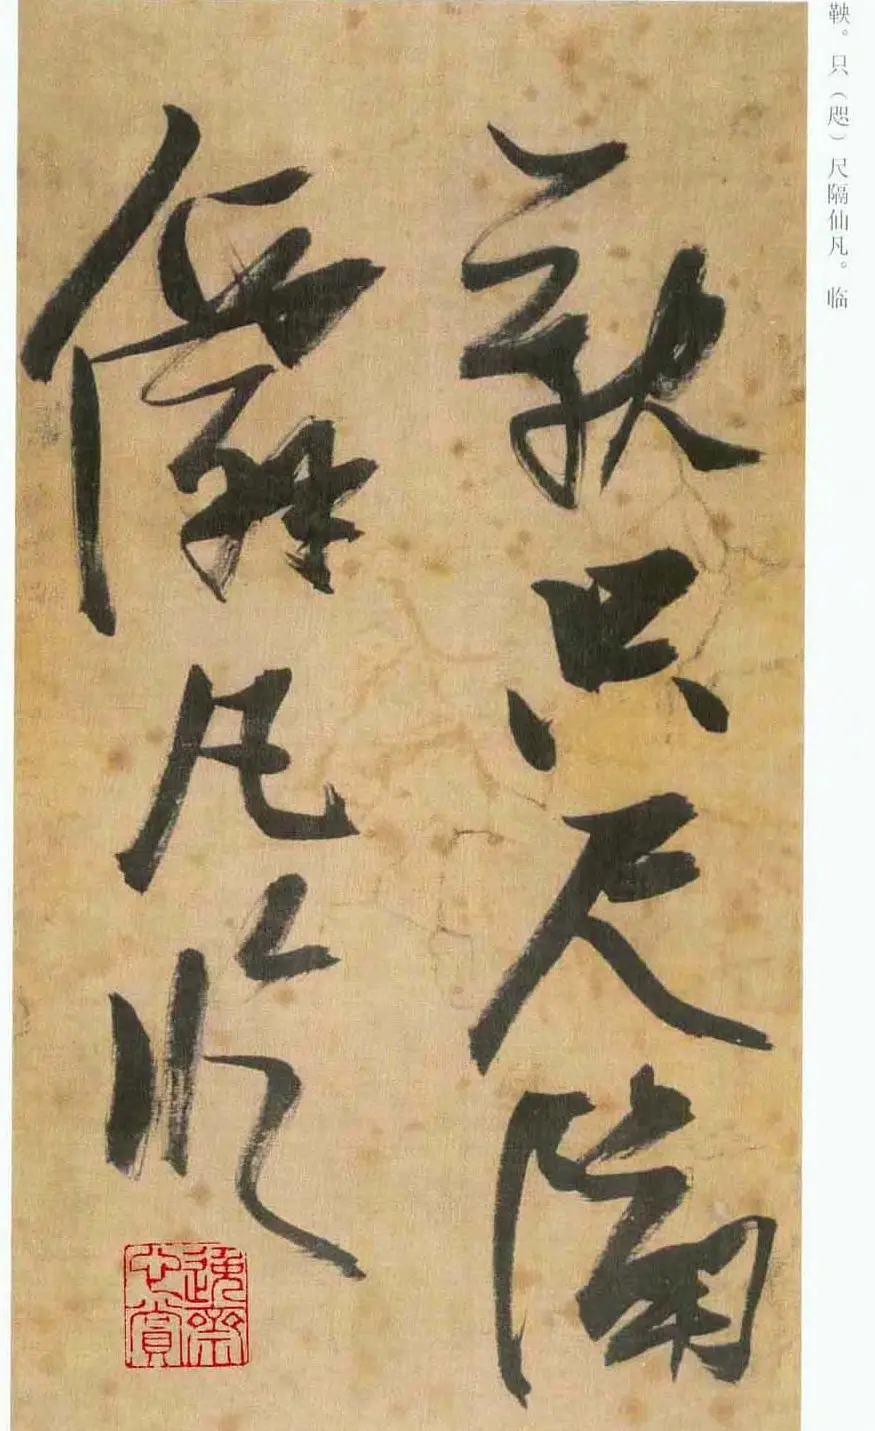 鞅。只（咫）尺隔仙凡。临
鞅只尺隔
僊凡临